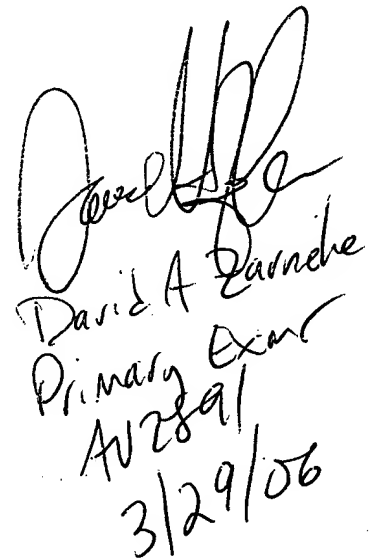 David A Zarneke
Primary Exmr
AU2891
3/29/06